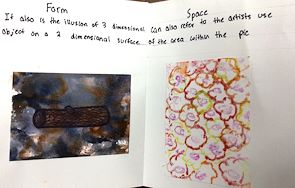 Form
It also is the illusion of 3 dimensional
object on a 2 dimensional surface
Space
can also refer to the artists use
of the area within the pic